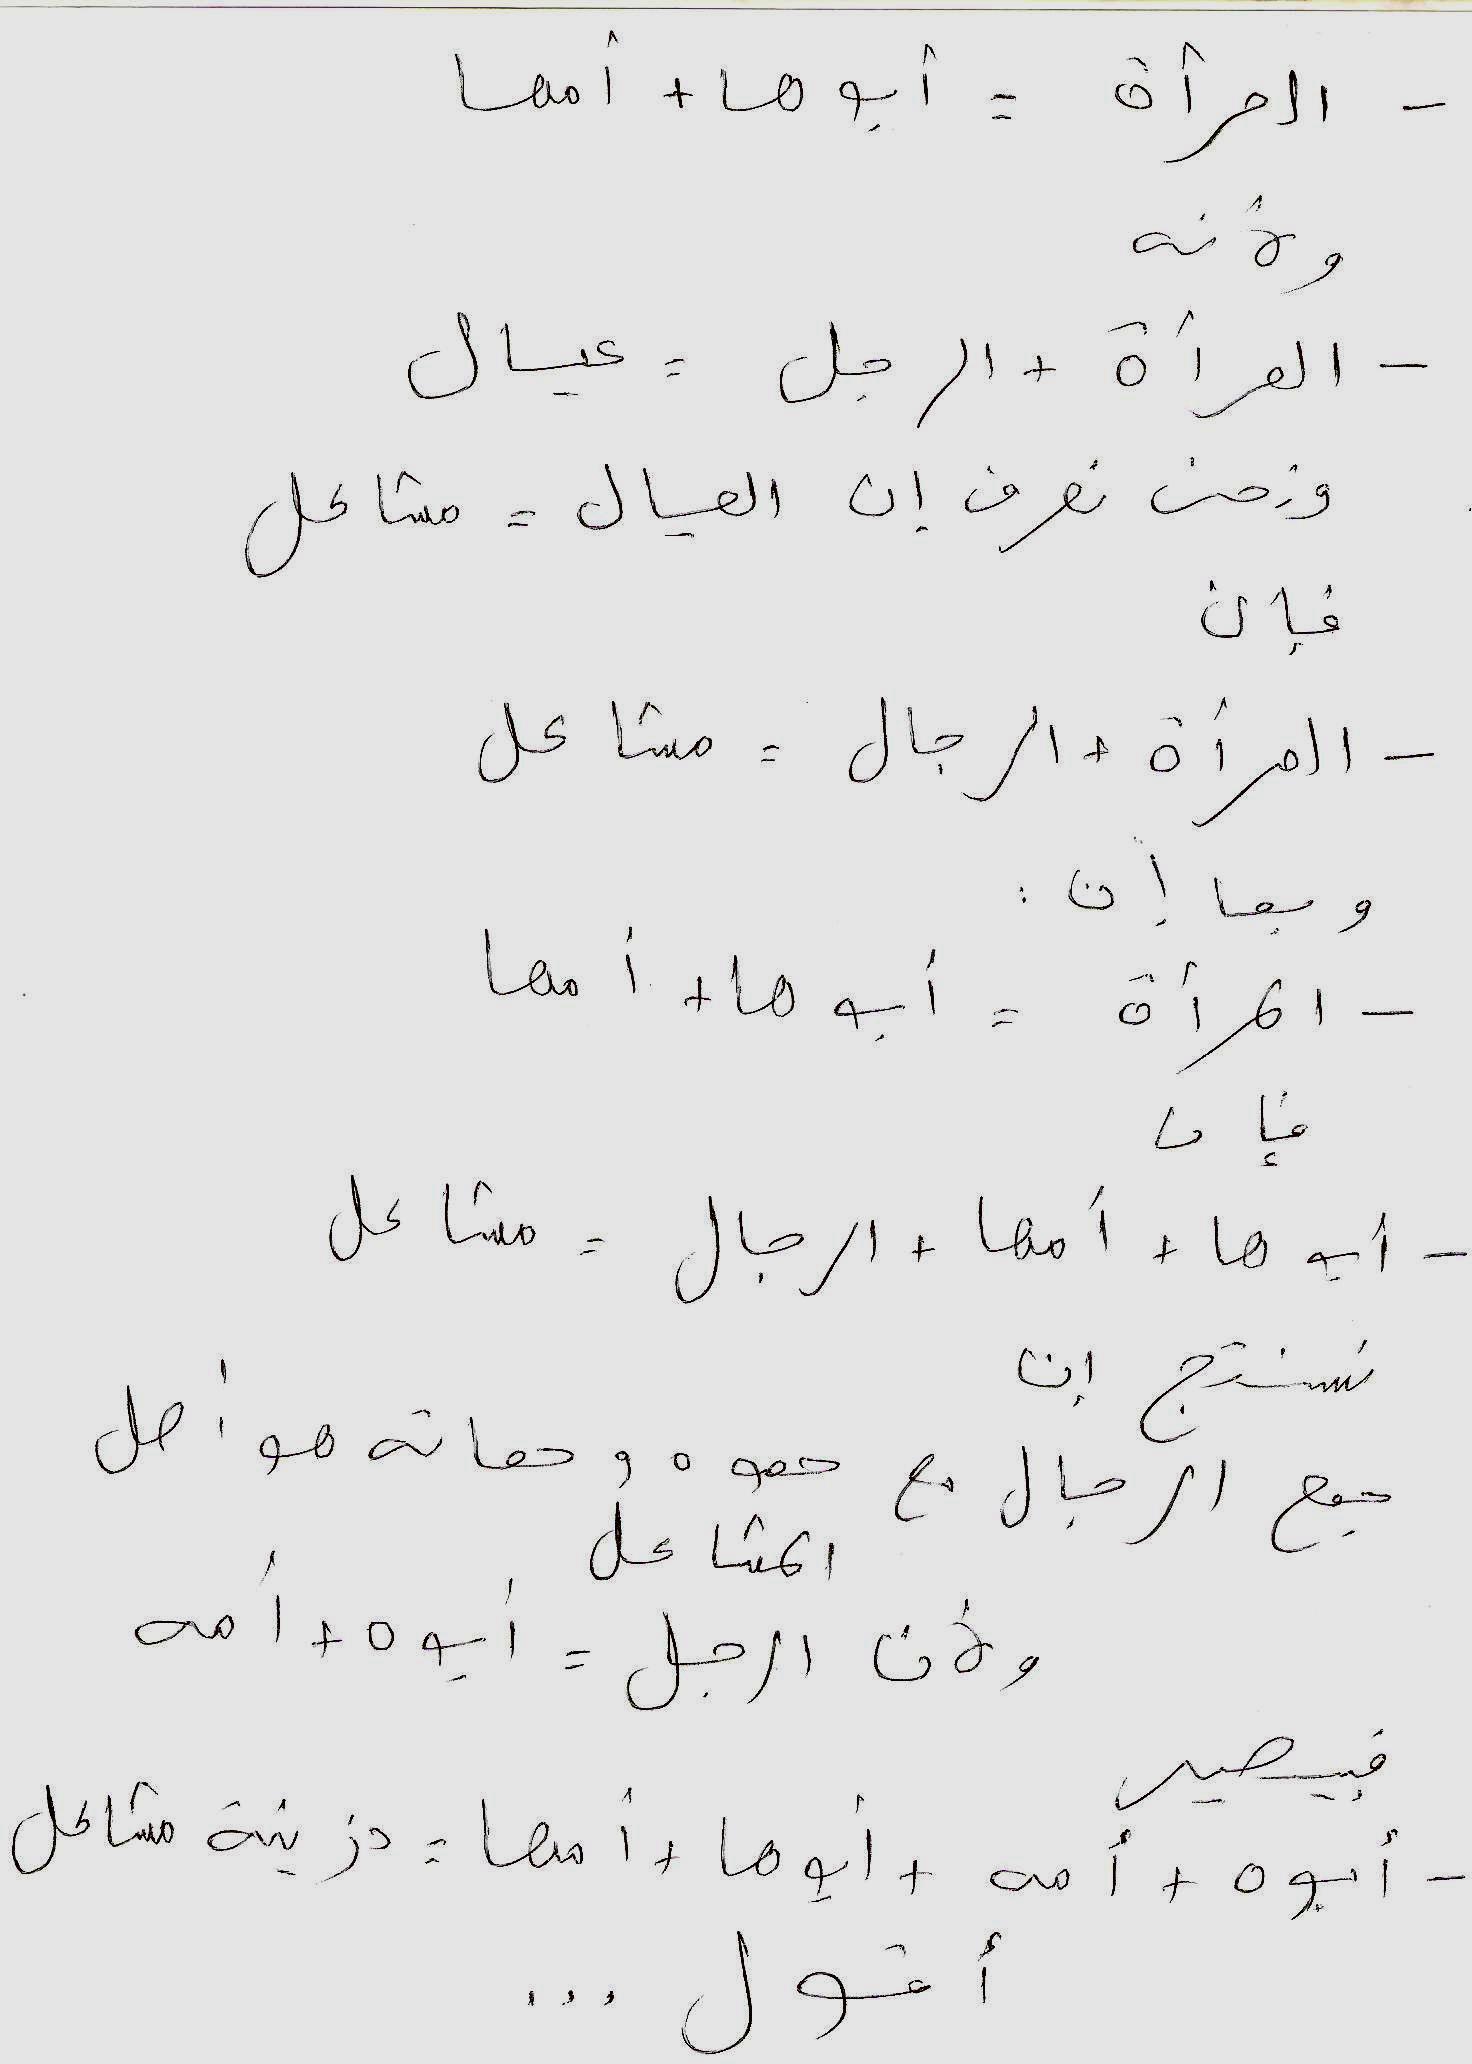 - المرأة = أبوها + أمها
ولأنه
- المرأة + الرجل = عيال
ونحن نعرف إن العيال = مشاكل
فإن
- المرأة + الرجال = مشاكل
وبما إن :
- المرأة = أبوها + أمها
فإن
- أبوها + أمها + الرجال = مشاكل
نستنتج إن
جمع الرجال مع حموه وحماته هو أصل
المشاكل
ولأن الرجل = أبوه + أمه
فيصير
- أبوه + أمه + أبوها + أمها = دزينة مشاكل
أقول ...